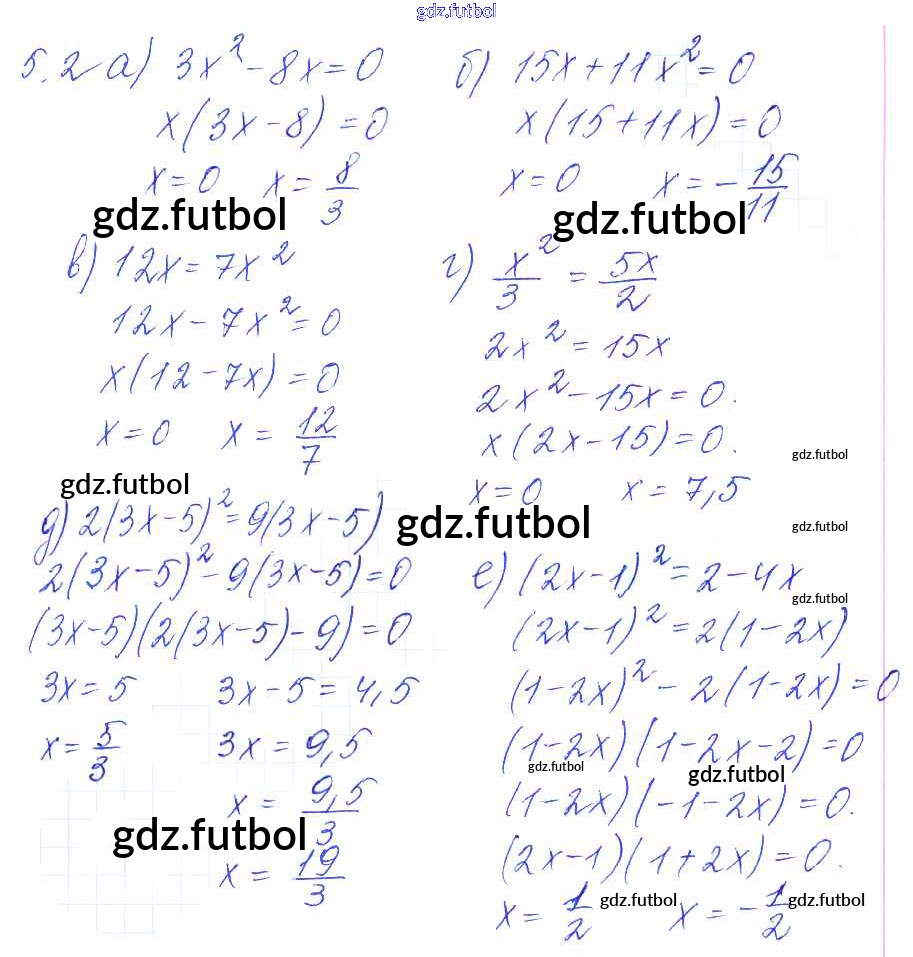 gdz.futbol
5.2 а) 3x² - 8x = 0
x(3x - 8) = 0
x = 0 x = 8/3
gdz.futbol
б) 15x + 11x² = 0
x(15 + 11x) = 0
x = 0 x = - 15/11
gdz.futbol
в) 12x = 7x²
12x - 7x² = 0
x(12 - 7x) = 0
x = 0 x = 12/7
gdz.futbol
г) x²/3 = 5x/2
2x² = 15x
2x² - 15x = 0.
x(2x - 15) = 0.
gdz.futbol
x = 0 x = 7,5
gdz.futbol
gdz.futbol
д) 2(3x - 5)² = 9(3x - 5)
2(3x - 5)² - 9(3x - 5) = 0
(3x - 5)(2(3x - 5) - 9) = 0
3x = 5 3x - 5 = 4,5
x = 5/3 3x = 9,5
x = 9,5/3
gdz.futbol
x = 19/3
е) (2x - 1)² = 2 - 4x
gdz.futbol
(2x - 1)² = 2(1 - 2x)
(1 - 2x)² - 2(1 - 2x) = 0
(1 - 2x)(1 - 2x - 2) = 0
gdz.futbol gdz.futbol
(1 - 2x)(-1 - 2x) = 0.
(2x - 1)(1 + 2x) = 0.
x = 1/2 x = - 1/2
gdz.futbol gdz.futbol